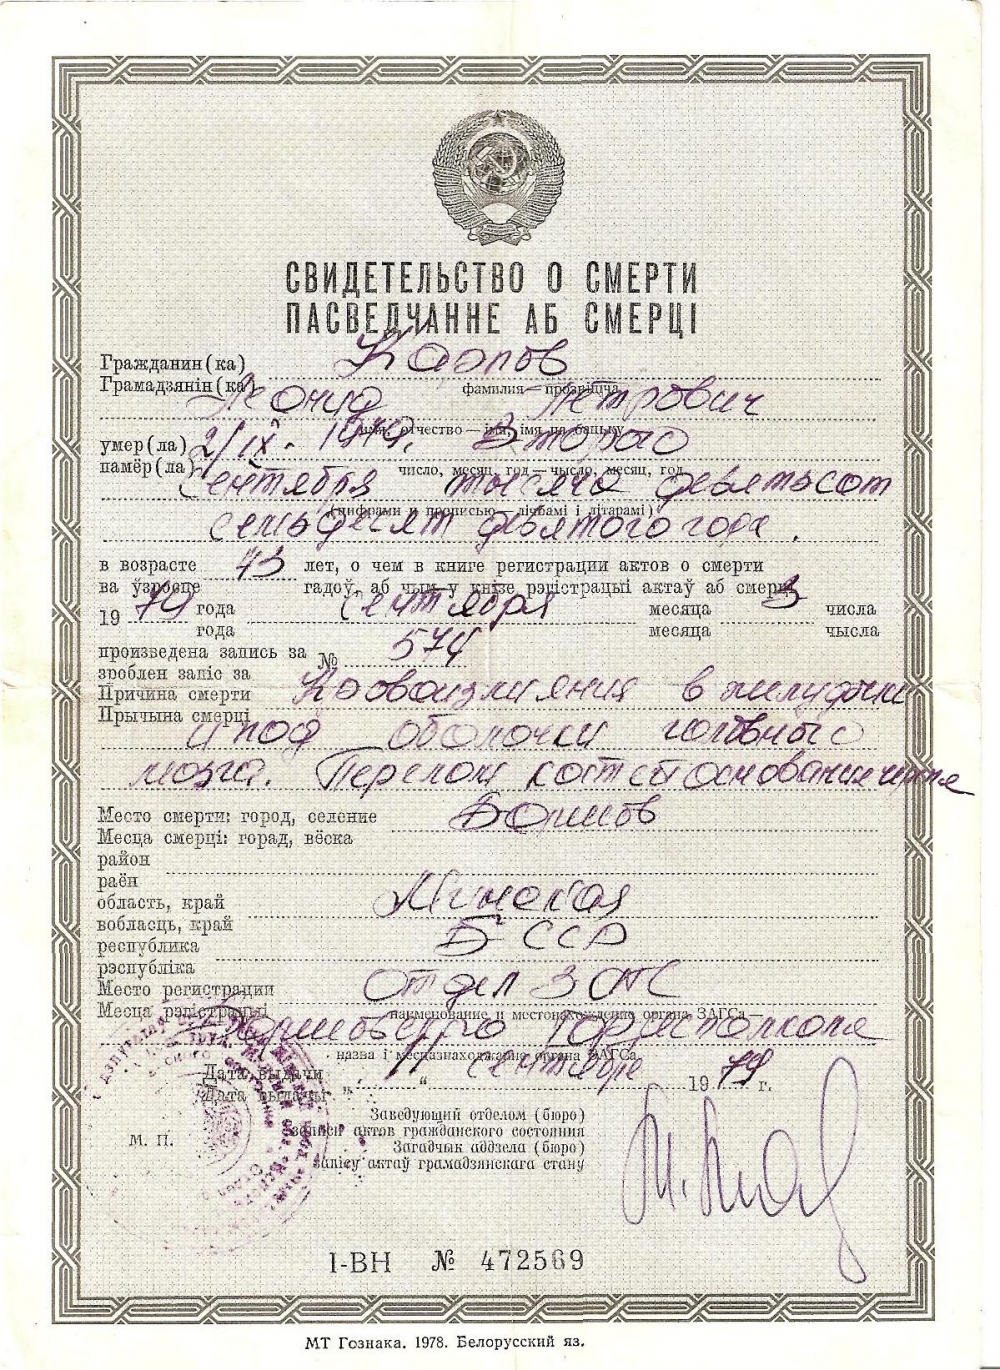 СВИДЕТЕЛЬСТВО О СМЕРТИ
ПАСВЕДЧАННЕ АБ СМЕРЦІ
Гражданин(ка) Карпов
Грамадзянін(ка)
фамилия — прозвішча
Леонид Петрович
имя, отчество — імя, імя па бацьку
умер(ла) 2/IX - 1979. Второго
памёр(ла)
число, месяц, год — чысло, месяц, год
сентября тысяча девятьсот
(цифрами и прописью — лічбамі і літарамі)
семьдесят девятого года.
в возрасте 43 лет, о чем в книге регистрации актов о смерти
ва ўзросце гадоў, аб чым у кнізе рэгістрацыі актаў аб смерці
1979 года сентября месяца 3 числа
года месяца чысла
произведена запись за № 574
зроблен запіс за
Причина смерти Кровоизлияния в желудочки
Прычына смерці
и под оболочки головного
мозга. Перелом костей основания черепа
Место смерти: город, селение Борисов
Месца смерці: горад, вёска
район
раён
область, край Минская
вобласць, край
республика БССР
рэспубліка
Место регистрации Отдел ЗАГС
Месца рэгістрацыі
наименование и местонахождение органа ЗАГСа —
Борисовского Горисполкома
назва і месцазнаходжанне органа ЗАГСа
Дата выдачи сентября 1979 г.
Дата выдачы
Заведующий отделом (бюро)
записи актов гражданского состояния
М. П.
Загадчык аддзела (бюро)
запісу актаў грамадзянскага стану
I-ВН № 472569
МТ Гознака. 1978. Белорусский яз.